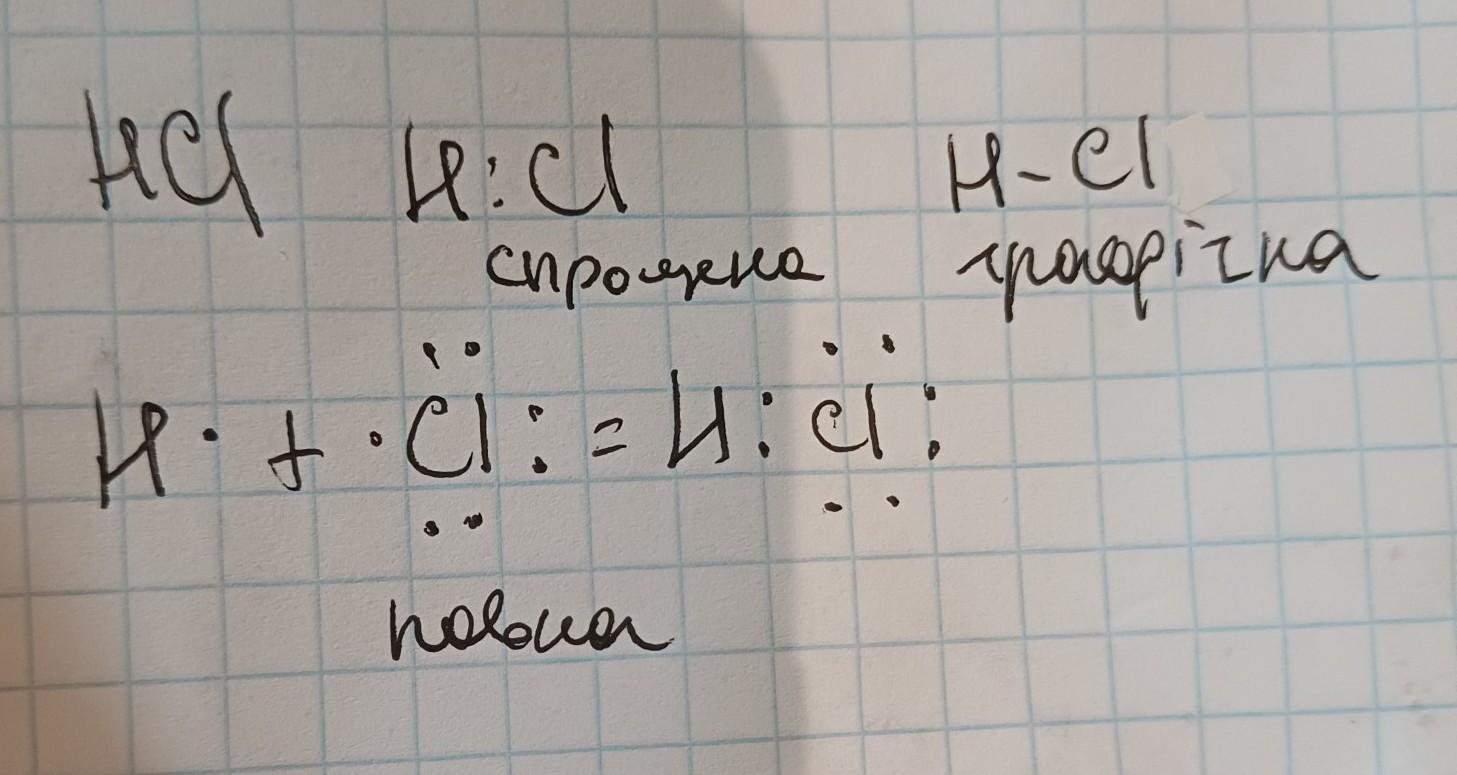 HCl H:Cl H-Cl
спрощена графічна
H· + ·Cl: = H:Cl:
повна